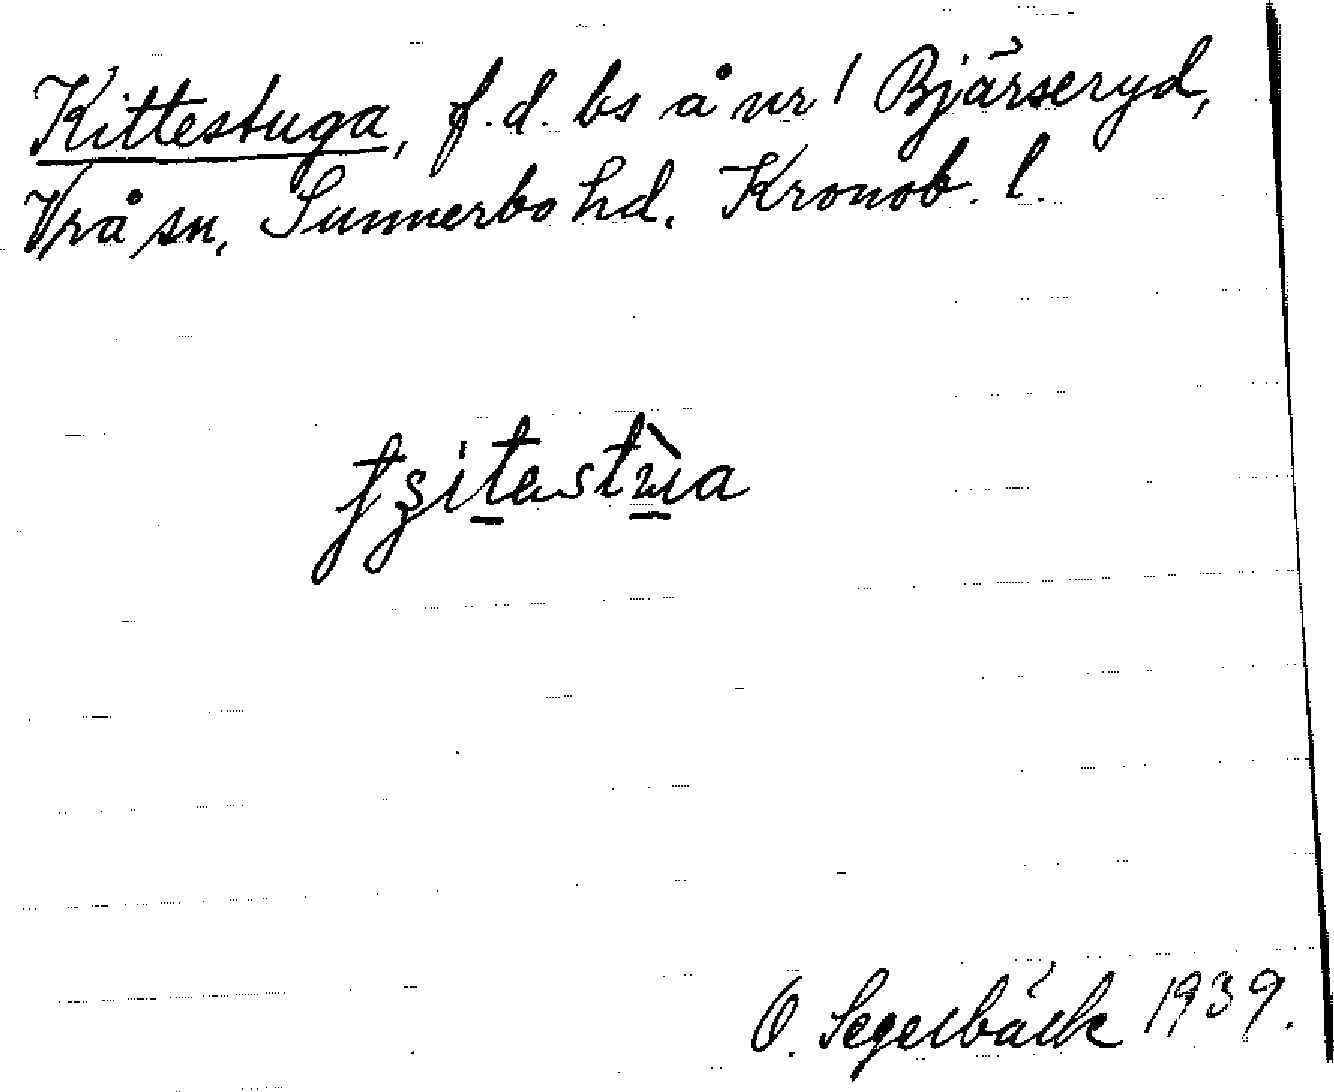 Kittestuga, f.d. bs å nr 1 Bjärseryd,
Vrå sn, Sunnerbo hd. Kronob. l.
O. Segerbäck 1939.